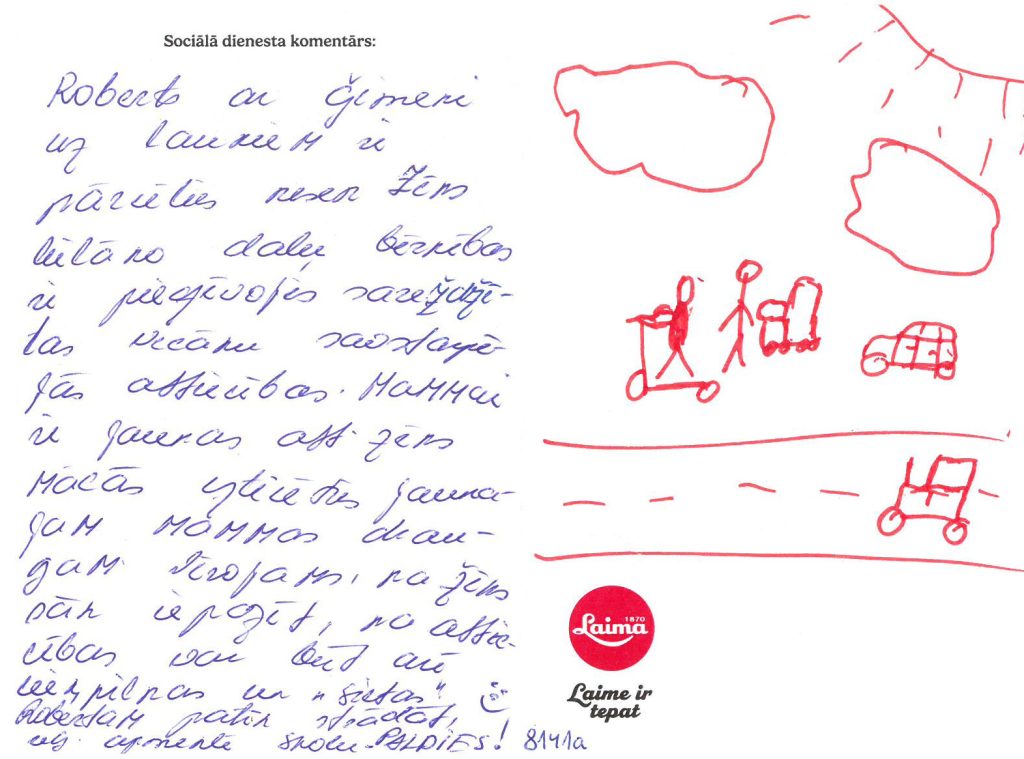 Sociālā dienesta komentārs:
Roberts ar ģimeni
uz laukiem ir
pārcēlies nesen Zēns
lielāko daļu bērnības
ir piedzīvojis sarežģī-
tas vecāku savstarpē-
jās attiecības. Mammai
ir jaunas att. zēns
mācās uzticēties jauna-
jam mammas drau-
gam. Ticējams, ka zēns
sāk iepazīt, ka attie-
cības var būt arī
cieņpilnas un "siltas"
Robertam patīk strādāt,
viņš apmeklē skolu. PALDIES! 8141a
1870
Laima
Laime ir
tepat